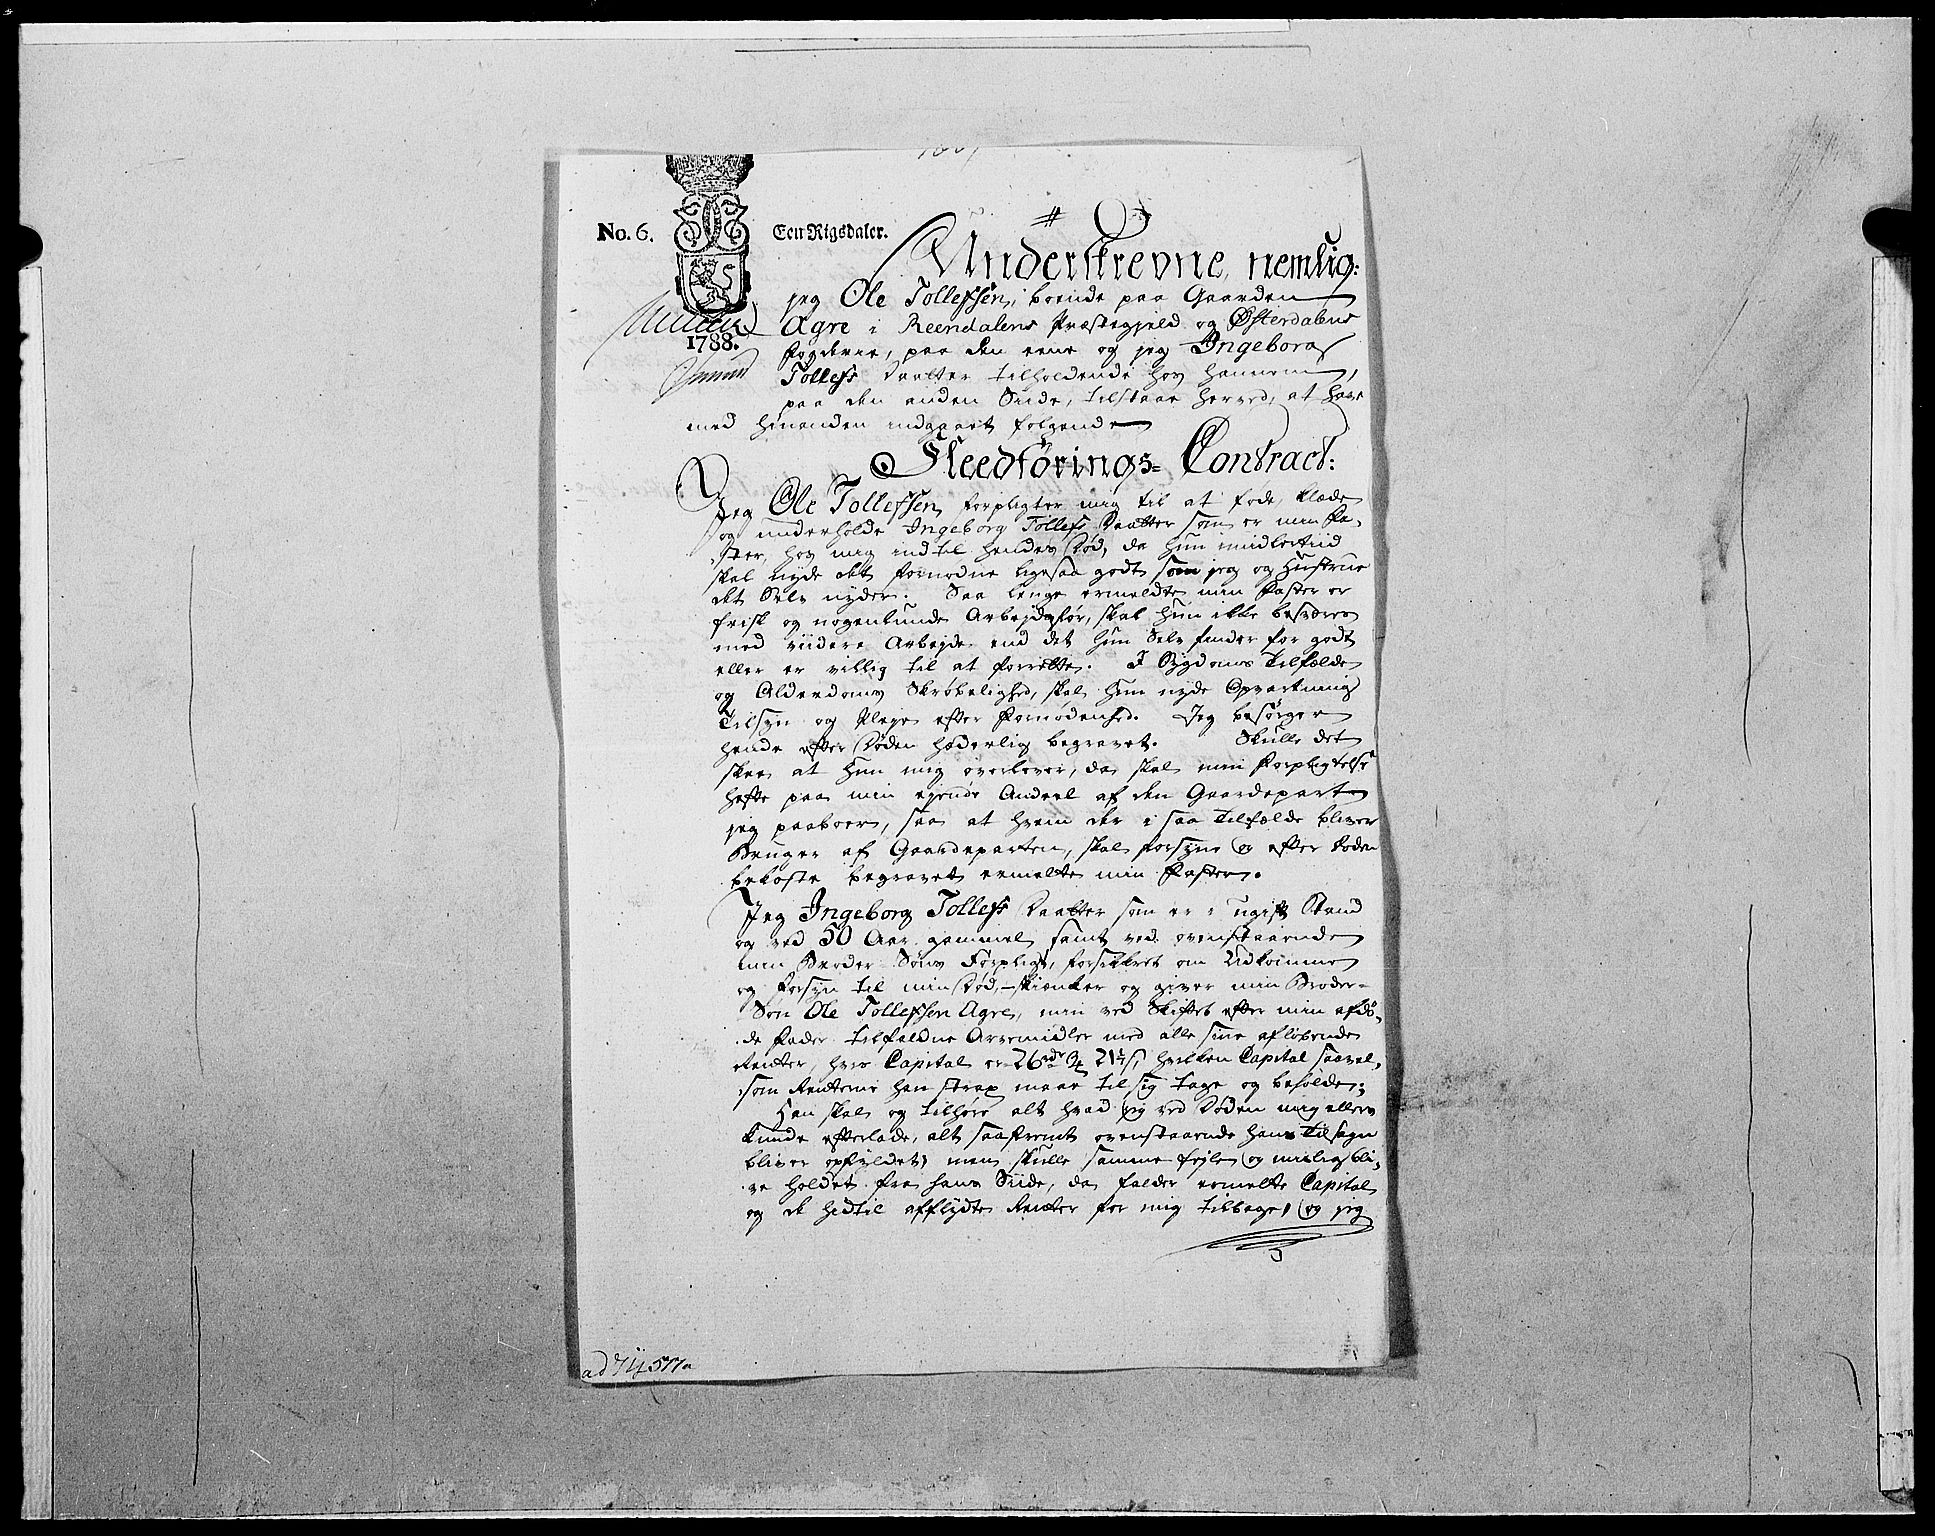 No. 6. Een Rigsdaler.
1788.
Underskrevne, nemlig:
jeg Ole Tollefsen, boende paa Gaarden
Agre i Reendalens Præstegjeld og Østerdalens
Fogderie, paa den eene og jeg Ingeborg
Tollefs Daatter tilholdende hos hannem,
paa den anden Side, tilstaar herved, at have
med hinanden indgaaet følgende
Fleedførings= Contract:
Jeg Ole Tollefsen forpligter mig til at føde, klæde
og underholde Ingeborg Tollefs Daatter som er min Fa-
ster, hos mig indtil hendes Død, da hun imidlertiid
skal nyde det fornødne ligesaa godt som jeg og Hustrue
det Selv nyder. Saa lenge ermeldte min Faster er
frisk og nogenlunde Arbejdsfør, skal hun ikke besværes
med viidere Arbejde end det hun Selv finder for godt
eller er villig til at forrette. I Sygdoms Tilfælde
og Alderdoms Skrøbelighed, skal hun nyde Opvartning
Tilsyn og Pleye efter Fornødenhed. Jeg besørger
hende efter Døden hæderlig begravet. Skulle det
skee at hun mig overlever, da skal min Forpligtelse
hefte paa min ejende Andeel af den Gaardepart
jeg paaboer, saa at hvem der i saa Tilfælde bliver
Bruger af Gaardeparten, skal forsyne og efter Døden
bekoste begravet ermelte min Faster.
Jeg Ingeborg Tollefs Daatter som er i ugift Stand
og ved 50 Aar gammel samt ved ovenstaaende
min Broder Søns Forpligt, forsikkret om Udkomme
og Forsyn til min Død, skienker og giver min Broder-
Søn Ole Tollefsen Agre, min ved Skiftet efter min afdø-
de Fader tilfaldne Arvemidler med alle sine afløbende
Renter, hvis Capital er 26 rdr 21½ s, hvilken Capital saavel-
som Renterne han strax maae til sig tage og beholde;
Han skal og tilhøre alt hvad jeg ved Døden mig ellers
kunde efterlade, alt saafremt ovenstaaende hans Tilsagn
bliver opfyldet; men skulle samme fejle og mislig bli-
ve holdet fra hans Siide, da falder ermelte Capital
og de hidtil afflydte Renter for mig tilbage, og jeg